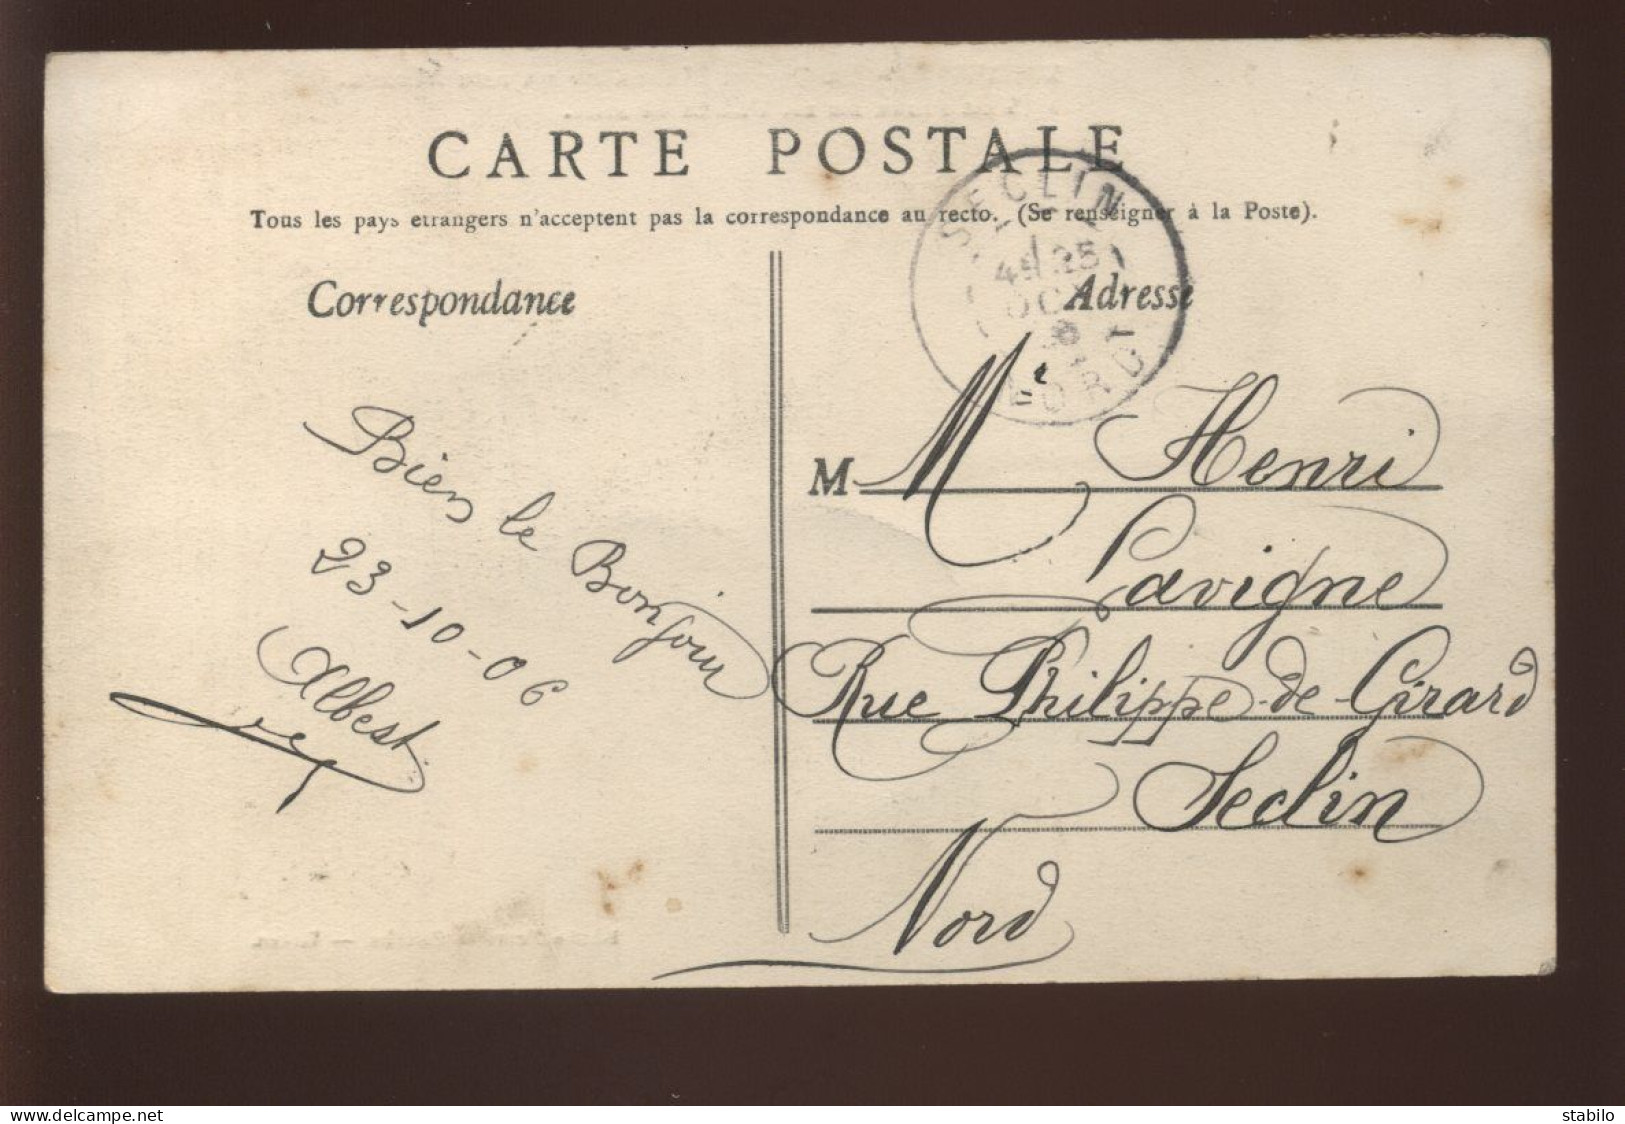 CARTE POSTALE
Tous les pays etrangers n'acceptent pas la correspondance au recto. (Se renseigner à la Poste).
Correspondance
Bien le Bonjour
23-10-06
Albert
SECLIN
25
OCT
NORD
Adresse
M Mr Henri
Lavigne
Rue Philippe-de-Girard
Seclin
Nord
stabilo